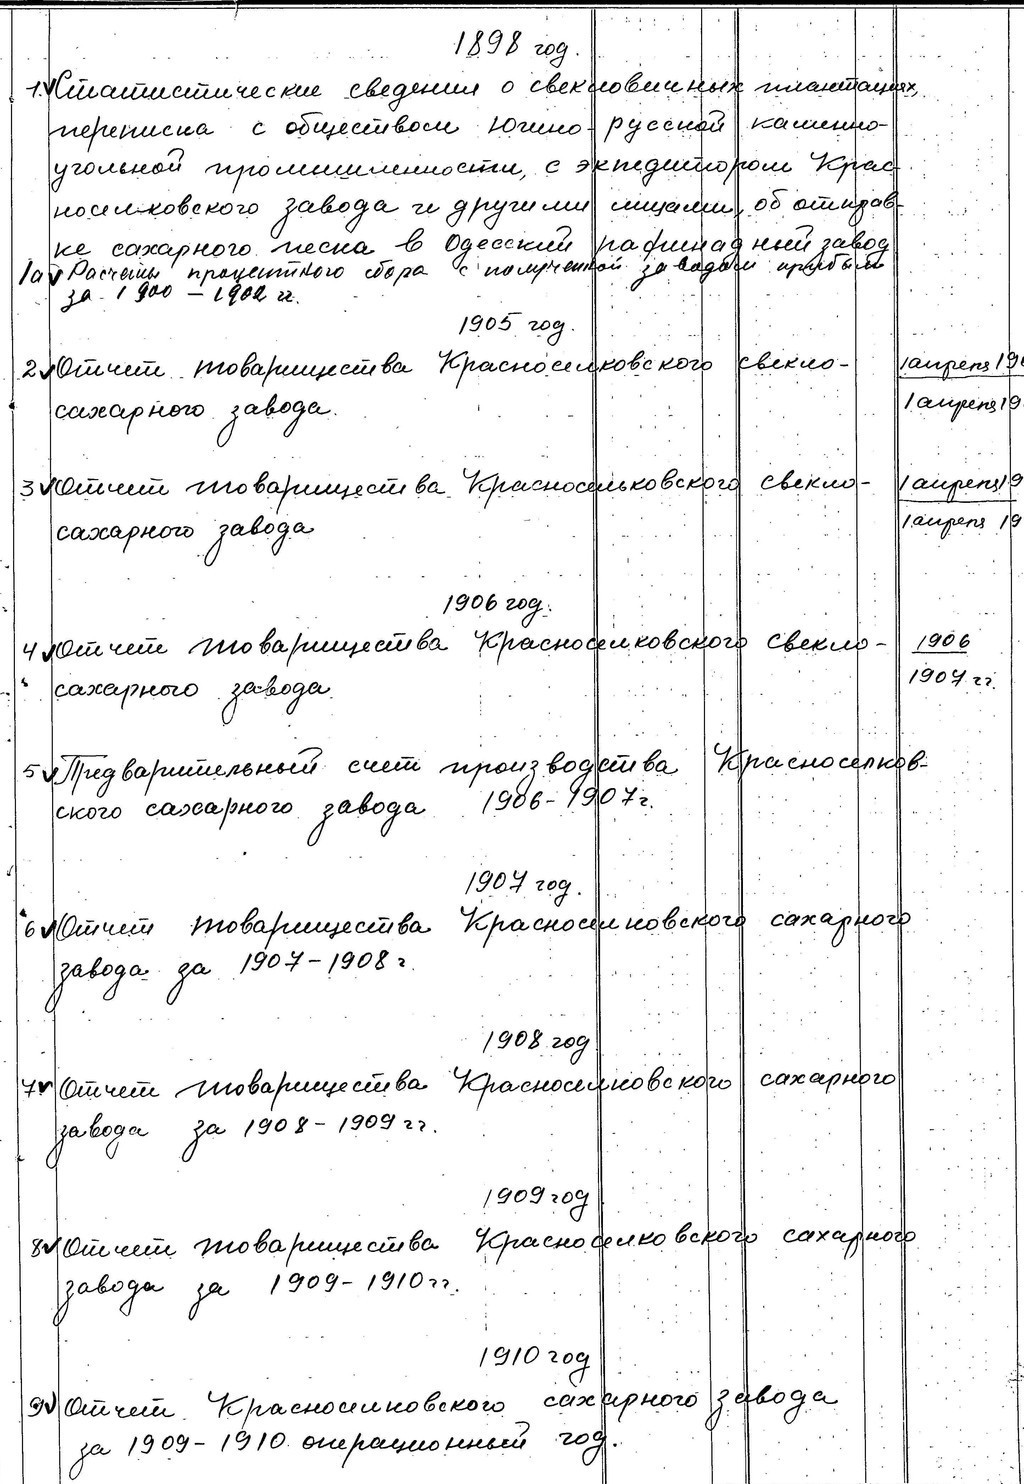 1898 год.
1. Статистические сведения о свекловичных плантациях,
переписка с обществом Южно-русской каменно-
угольной промышленности, с экпедитором Крас-
носелковского завода и другими лицами, об отправ-
ке сахарного песка в Одесский рафинадный завод
1а Расчеты процентного сбора с полученной заводом прибыли
за 1900 – 1902 гг.
1905 год.
2 Отчет товарищества Красноселковского свекло- 1 апреля
сахарного завода. 1 апреля
3 Отчет товарищества Красносельковского свекло- 1 апреля
сахарного завода 1 апреля
1906 год.
4 Отчет товарищества Красноселковского свекло- 1906
сахарного завода. 1907 гг.
5 Предварительный счет производства Красноселков-
ского сахарного завода 1906-1907г.
1907 год.
6 Отчет товарищества Красноселковского сахарного
завода за 1907-1908 г.
1908 год
7 Отчет товарищества Красноселковского сахарного
завода за 1908-1909 гг.
1909 год
8 Отчет товарищества Красноселковского сахарного
завода за 1909-1910 гг.
1910 год
9 Отчет Красноселковского сахарного завода
за 1909-1910 операционный год.